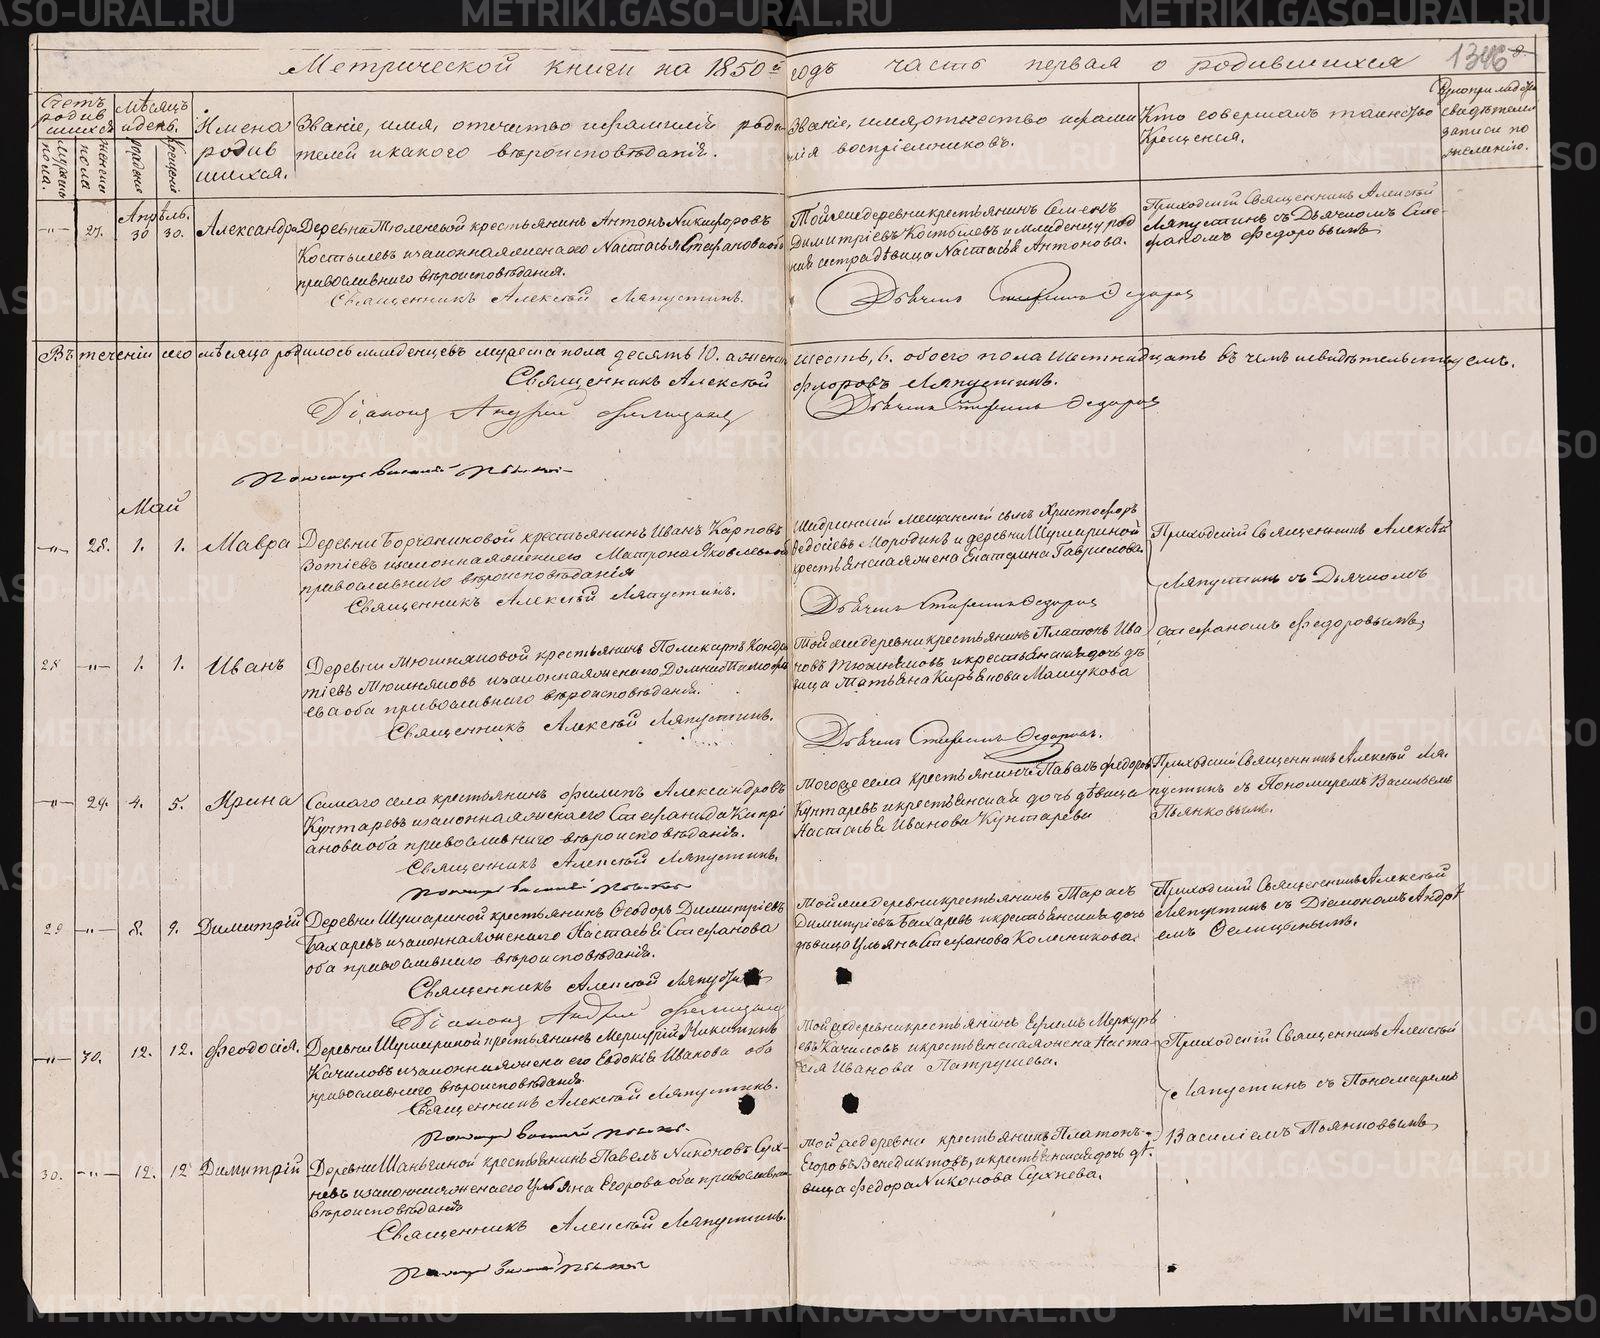 Метрической книги на 1850й годъ часть первая о родившихся
1346
Счетъ родившихся
Мѣсяцъ и день.
Имена родившихся.
Званіе, имя, отчество и фамилія родителей и какого вѣроисповѣданія.
Званіе, имя, отчество и фамилія воспріемниковъ.
Кто совершалъ таинство Крещенія.
мужеска пола.
женска пола
рожденія
крещенія
Апрѣль.
27. 30 30. Александра
Деревни Тюленевой крестьянинъ Антонъ Никифоровъ
Костылевъ и законная жена его Настасья Стефанова оба
православнаго вѣроисповѣданія.
Священникъ Алексѣй Ляпустинъ.
Той же деревни крестьянинъ Семенъ
Димитріевъ Костылевъ и младенцу родная сестра дѣвица Настасья Антонова.
Дьячекъ Стефанъ Федоровъ
Приходскій Священникъ Алексѣй
Ляпустинъ съ Дьячкомъ Стефаномъ Федоровымъ
Въ теченіи сего мѣсяца родилось младенцевъ мужеска пола десять 10. а женска шесть, 6. обоего пола шестнадцать въ чемъ и свидѣтельствуемъ.
Священникъ Алексѣй Флоровъ Ляпустинъ.
Діаконъ Андрей Фелицынъ
Дьячекъ Стефанъ Федоровъ
Пономарь Василій Пьянковъ
Май
28. 1. 1. Мавра
Деревни Борчаниковой крестьянинъ Иванъ Карповъ
Зотіевъ и законная жена его Матрона Яковлева оба
православнаго вѣроисповѣданія
Священникъ Алексѣй Ляпустинъ.
Шадринскій мещанскій сынъ Христофоръ
Федосіевъ Мородинъ и деревни Шушариной
крестьянская жена Екатерина Гаврилова.
Дьячекъ Стефанъ Федоровъ
Приходскій Священникъ Алексѣй
Ляпустинъ съ Дьячкомъ
Стефаномъ Федоровымъ
28 1. 1. Иванъ
Деревни Мюшняковой крестьянинъ Поликарпъ Кондратіевъ Мюшняковъ и законная жена его Домна Тимофеева оба православнаго вѣроисповѣданія.
Священникъ Алексѣй Ляпустинъ.
Той же деревни крестьянинъ Платонъ Ивановъ Мюшняковъ и крестьянская дочь дѣвица Татьяна Кирьянова Машукова
Дьячекъ Стефанъ Федоровъ.
29. 4. 5. Ирина
Самаго села крестьянинъ Филипъ Александровъ
Кунгаревъ и законная жена его Стефанида Кипріанова оба православнаго вѣроисповѣданія.
Священникъ Алексѣй Ляпустинъ.
Пономарь Василій Пьянковъ
Того же села крестьянинъ Павелъ Федоровъ
Кунгаревъ и крестьянская дочь дѣвица
Настасья Иванова Кунгарева
Приходскій Священникъ Алексѣй Ляпустинъ съ Пономаремъ Васильемъ
Пьянковымъ.
29 8. 9. Димитрій
Деревни Шушариной крестьянинъ Феодоръ Димитріевъ
Бахаревъ и законная жена его Настасья Стефанова
оба православнаго вѣроисповѣданія.
Священникъ Алексѣй Ляпустинъ
Діаконъ Андрей Фелицынъ
Той же деревни крестьянинъ Тарасъ
Димитріевъ Бахаревъ и крестьянская дочь
дѣвица Ульяна Стефанова Колесникова.
Приходскій Священникъ Алексѣй
Ляпустинъ съ Діакономъ Андреемъ Фелицынымъ.
30. 12. 12. Феодосія.
Деревни Шушариной крестьянинъ Меркурій Никитинъ
Качиловъ и законная жена его Евдокія Иванова оба
православнаго вѣроисповѣданія.
Священникъ Алексѣй Ляпустинъ.
Пономарь Василій Пьянковъ.
Той же деревни крестьянинъ Ефимъ Меркурьевъ Качиловъ и крестьянская жена Настасья Иванова Патрушева.
Приходскій Священникъ Алексѣй
Ляпустинъ съ Пономаремъ
Василіемъ Пьянковымъ
30. 12. 12 Димитрій
Деревни Шаньгиной крестьянинъ Павелъ Никоновъ Сухневъ и законная жена его Ульяна Егорова оба православнаго
вѣроисповѣданія
Священникъ Алексѣй Ляпустинъ.
Пономарь Василій Пьянковъ
Той же деревни крестьянинъ Платонъ
Егоровъ Венедиктовъ, и крестьянская дочь дѣвица Федора Никонова Сухнева.
METRIKI.GASO-URAL.RU